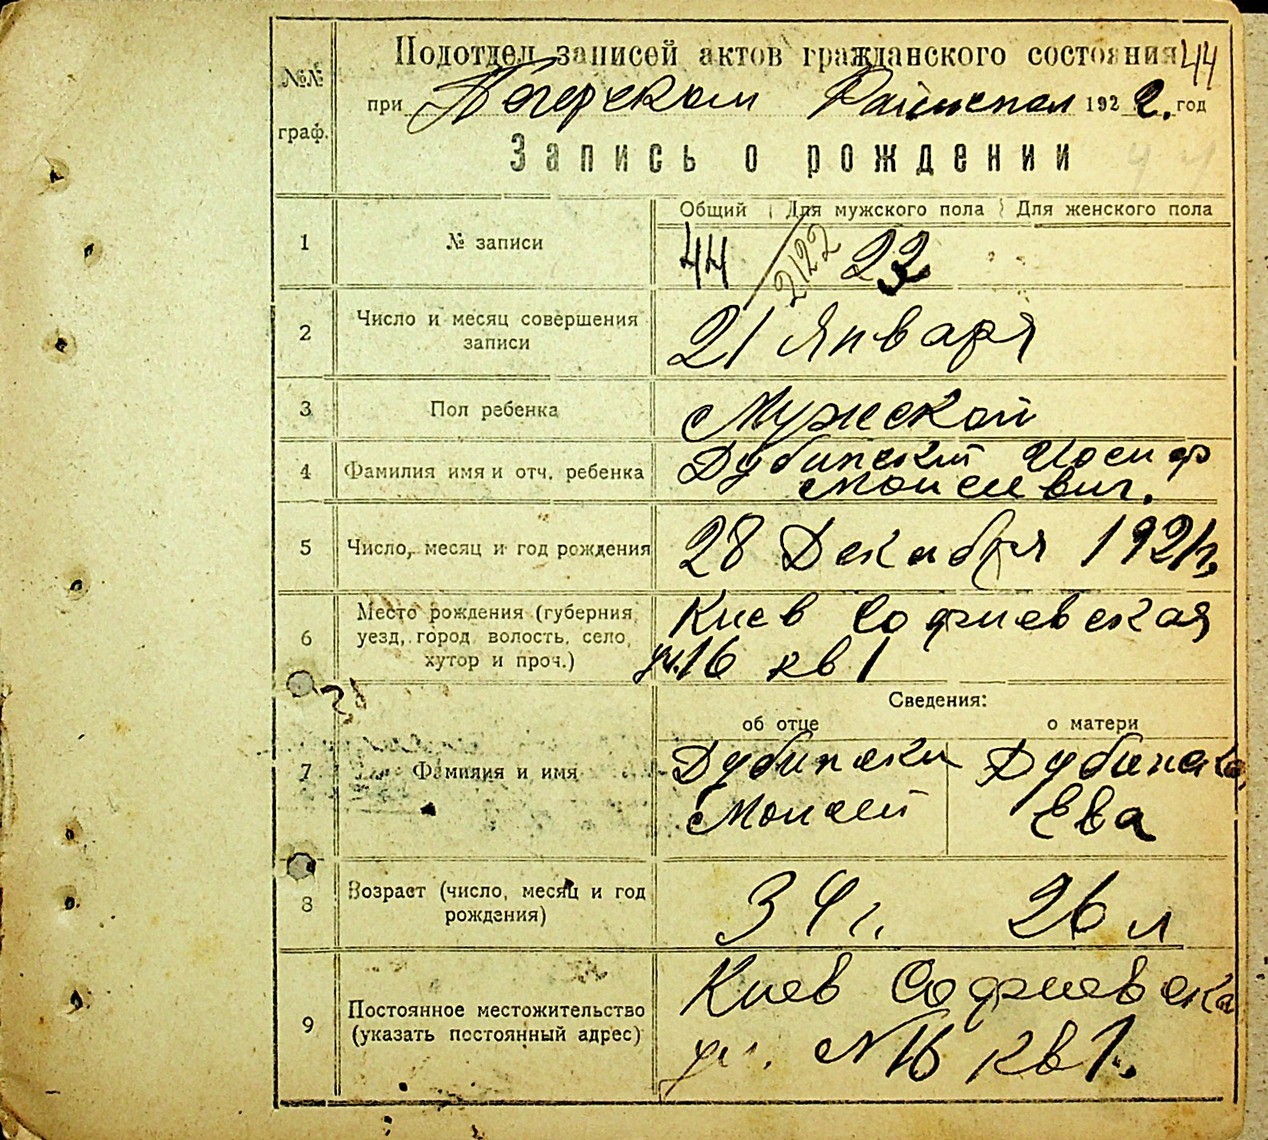 №№
граф.
Подотдел записей актов гражданского состояния 44
при Печерском 1922. год
Запись о рождении
Общий Для мужского пола Для женского пола
1 № записи 44 2122 23
2 Число и месяц совершения
записи
21 Января
3 Пол ребенка Мужской
4 Фамилия имя и отч. ребенка Дубинский Иосиф
Моисеевич.
5 Число, месяц и год рождения 28 Декабря 1921 г.
6 Место рождения (губерния,
уезд, город, волость, село,
хутор и проч.)
Киев Софиевская
ул. 16 кв 1
Сведения:
об отце о матери
7 Фамилия и имя
Дубински Дубинска
Моисей Ева
8 Возраст (число, месяц и год
рождения)
34 г. 26 л
9 Постоянное местожительство
(указать постоянный адрес)
Киев Софиевска
ул. № 16 кв 1.